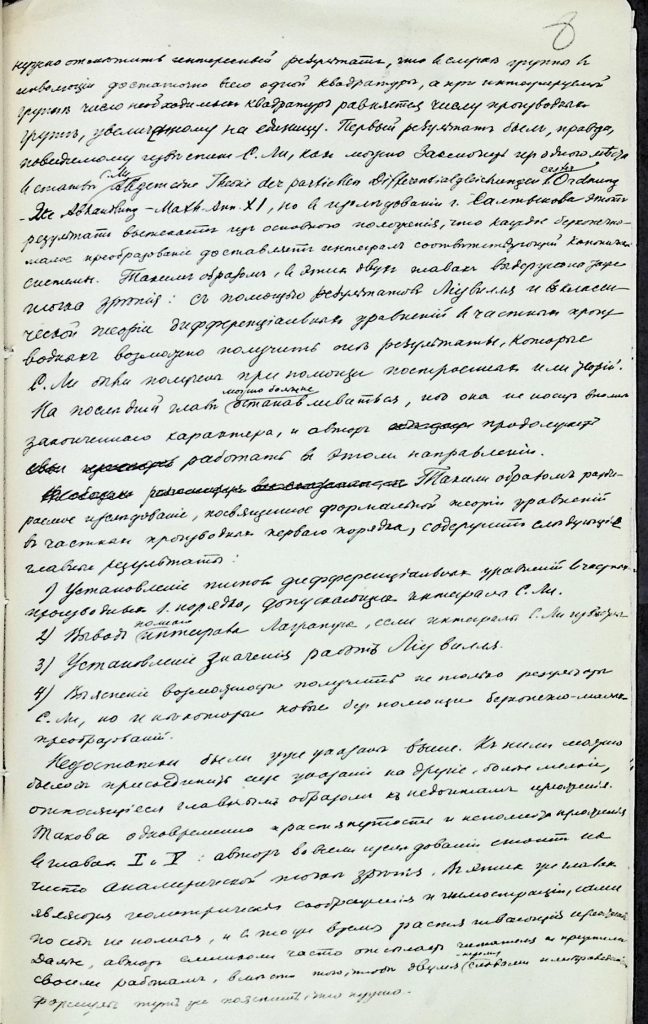 8
нужно отметить интересный результатъ, что въ случаѣ группы въ
инволюціи достаточно всего одной квадратуры, а при интегрируемой
группѣ число необходимыхъ квадратуръ равняется числу производныхъ
группъ, увеличенному на единицу. Первый результатъ былъ, правда,
повидимому извѣстенъ С. Ли, какъ можно заключить изъ одного мѣста
въ статьѣ С. Ли Allgemeine Theorie der partiellen Differentialgleichungen erster Ordnung
- 2te Abhandlung - Math. Ann. XI, но въ изслѣдованіи г. Салтыкова этотъ
результатъ вытекаетъ изъ основного положенія, что каждое безконечно-
малое преобразованіе доставляетъ интегралъ соотвѣтствующей канонич.
системы. Такимъ образомъ, въ этихъ двухъ главахъ выдержана
точка зрѣнія: съ помощью результатовъ Ліувилля и классической
теоріи дифференціальныхъ уравненій въ частныхъ произ-
водныхъ возможно получить тѣ результаты, которые
С. Ли были получены при помощи построенныхъ имъ теорій.
На послѣдней главѣ можно было не останавливаться, ибо она не носитъ вполнѣ
законченнаго характера, и авторъ продолжаетъ
работать въ этомъ направленіи.
Такимъ образомъ разби-
раемое изслѣдованіе, посвященное формальной теоріи уравненій
въ частныхъ производныхъ перваго порядка, содержитъ слѣдующіе
главные результаты:
1) Установленіе типовъ дифференціальныхъ уравненій въ частн.
производныхъ 1. порядка, допускающихъ интегралъ С. Ли.
2) Выводъ полнаго интеграла Лагранжа, если интегралъ С. Ли извѣстенъ
3) Установленіе значенія работъ Ліувилля.
4) Выясненіе возможности получить не только результаты
С. Ли, но и нѣкоторые новые безъ помощи безконечно-малыхъ
преобразованій.
Недостатки были уже указаны выше. Къ нимъ можно
было присоединить еще указанія на другіе, болѣе мелкіе,
относящіеся главнымъ образомъ къ недочетамъ изложенія.
Такова одновременно растянутость и неполнота изложенія
въ главахъ I и V: авторъ во всемъ изслѣдованіи стоитъ на
чисто аналитической точкѣ зрѣнія. Въ этихъ же главахъ
являются геометрическія соображенія и иллюстраціи, сами
по себѣ не полныя, и въ то же время растягивающія изложеніе.
Далѣе, авторъ слишкомъ часто отсылаетъ читателя къ прежнимъ
своимъ работамъ, вмѣсто того, чтобы двумя-тремя словами и
формулами тутъ же пояснить, что нужно.